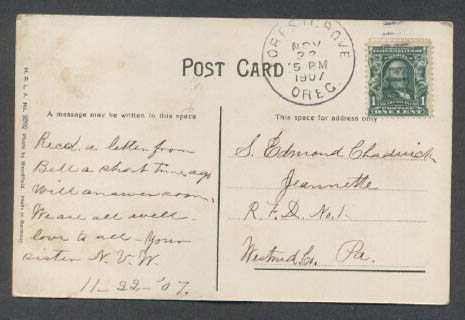 POST CARD
FOREST GROVE
NOV
22
5 PM
1907
OREG.
1
1
ONE CENT
A message may be written in this space
This space for address only
Recd. a letter from
Bell a short time ago
Will answer soon,
We are all well -
love to all - Your
sister N. V. W.
11-22-'07.
S. Edmond Chadwick
Jeannette
R. F. D. No. 1-
Westmd. Co. Pa.
M. R. L. A. No. Photo by Woodfield. Made in Germany.